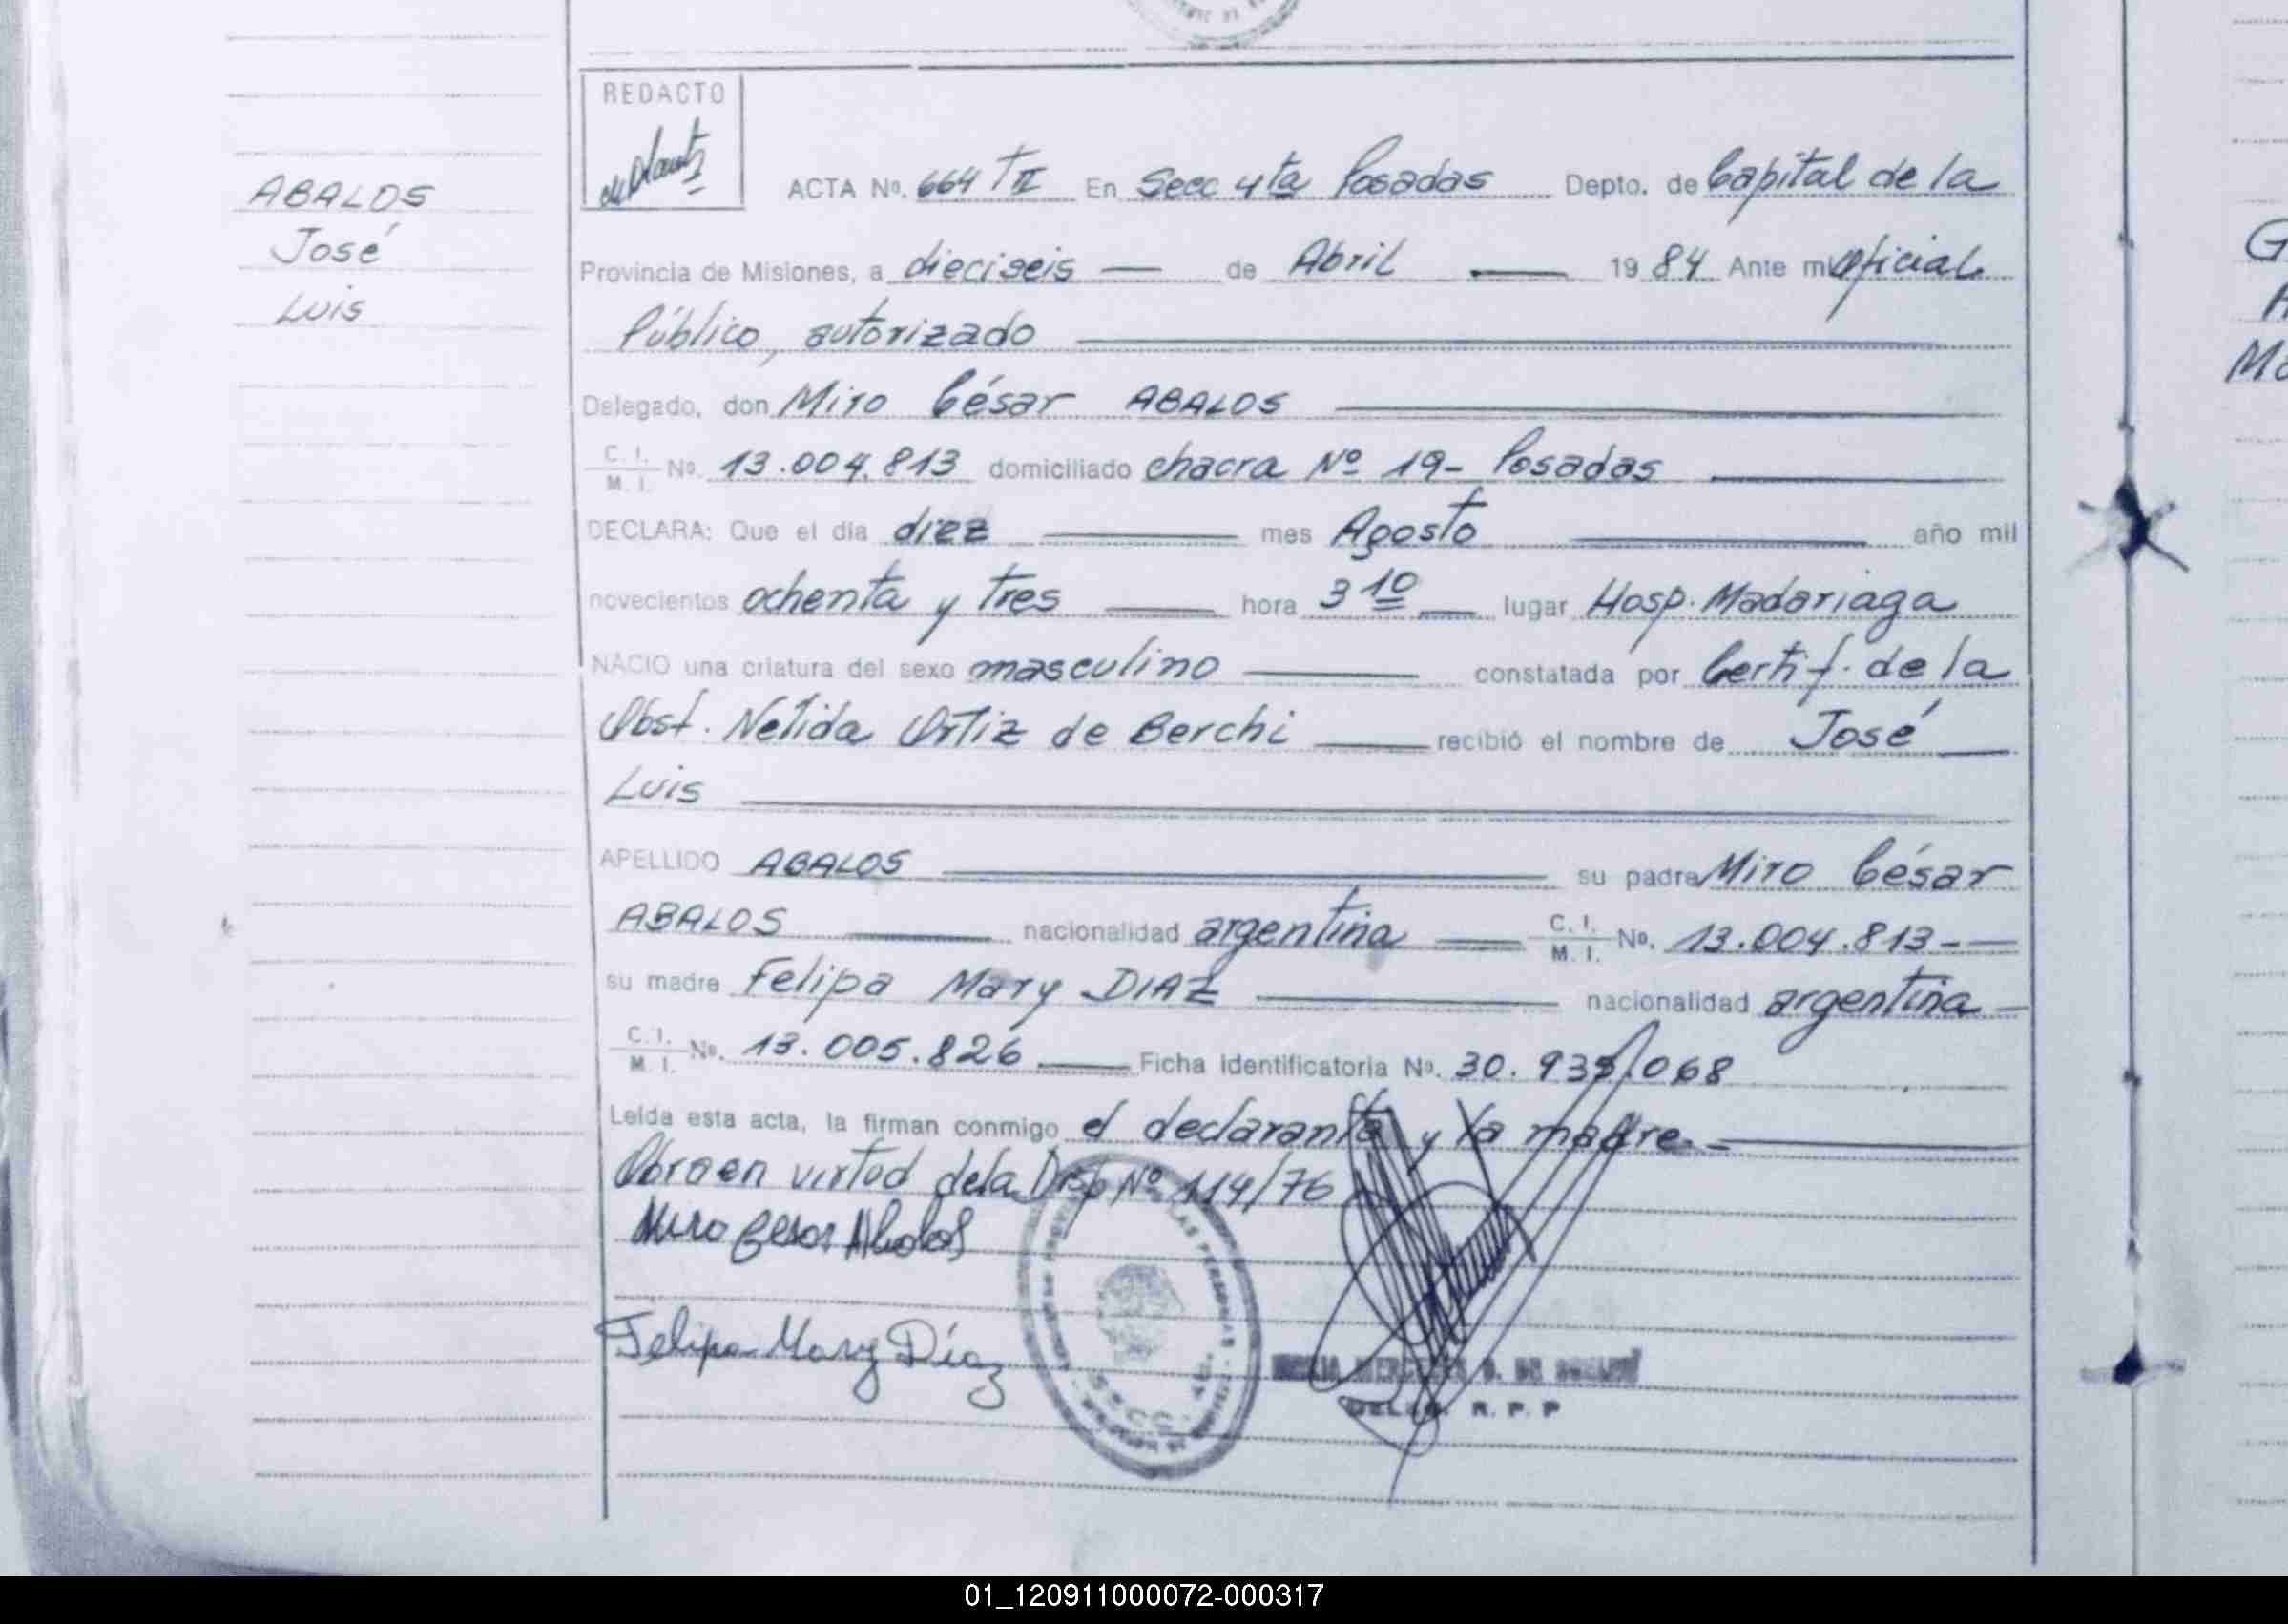 ABALOS
José
Luis
REDACTO
ACTA Nº. 664 T II En Secc 4ta Posadas Depto. de Capital de la
Provincia de Misiones, a dieciseis — de Abril — 1984 Ante mi oficial
Público, autorizado
Delegado, don Miro César ABALOS
C. I. M. I. Nº. 13.004.813 domiciliado chacra Nº 19- Posadas
DECLARA: Que el día diez mes Agosto año mil
novecientos ochenta y tres hora 3 10 lugar Hosp. Madariaga
NACIO una criatura del sexo masculino constatada por Certif. de la
Obst. Nélida Ortiz de Berchi recibió el nombre de José
Luis
APELLIDO ABALOS su padre Miro César
ABALOS nacionalidad argentina C. I. M. I. Nº. 13.004.813-
su madre Felipa Mary DIAZ nacionalidad argentina
C. I. M. I. Nº. 13.005.826 Ficha identificatoria Nº. 30.939.068
Leída esta acta, la firman conmigo el declarante y la madre.
Obra en virtud de la Disp Nº 114/76
Miro Cesar Abalos
Felipa Mary Díaz
MERCEDES DE
DELEG. R. P. P
SECC. 4a.
G
A
Ma
01_120911000072-000317